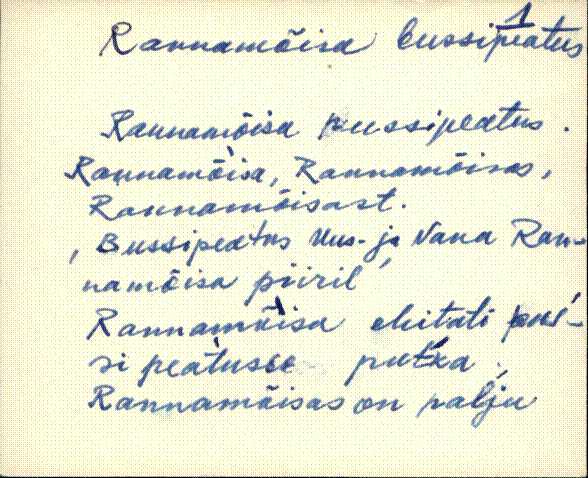 1
Rannamõisa bussipeatus
Rannamõisa pussipeatus.
Rannamõ`isa, Rannamõisas,
Rannamõisast.
, Bussipeatus Uus- ja Vana Ran-
namõisa piiril ´
Rannamõ`isa ehitati pus´-
si pea`tusse put´ka.
Rannamõisas on pal´ju